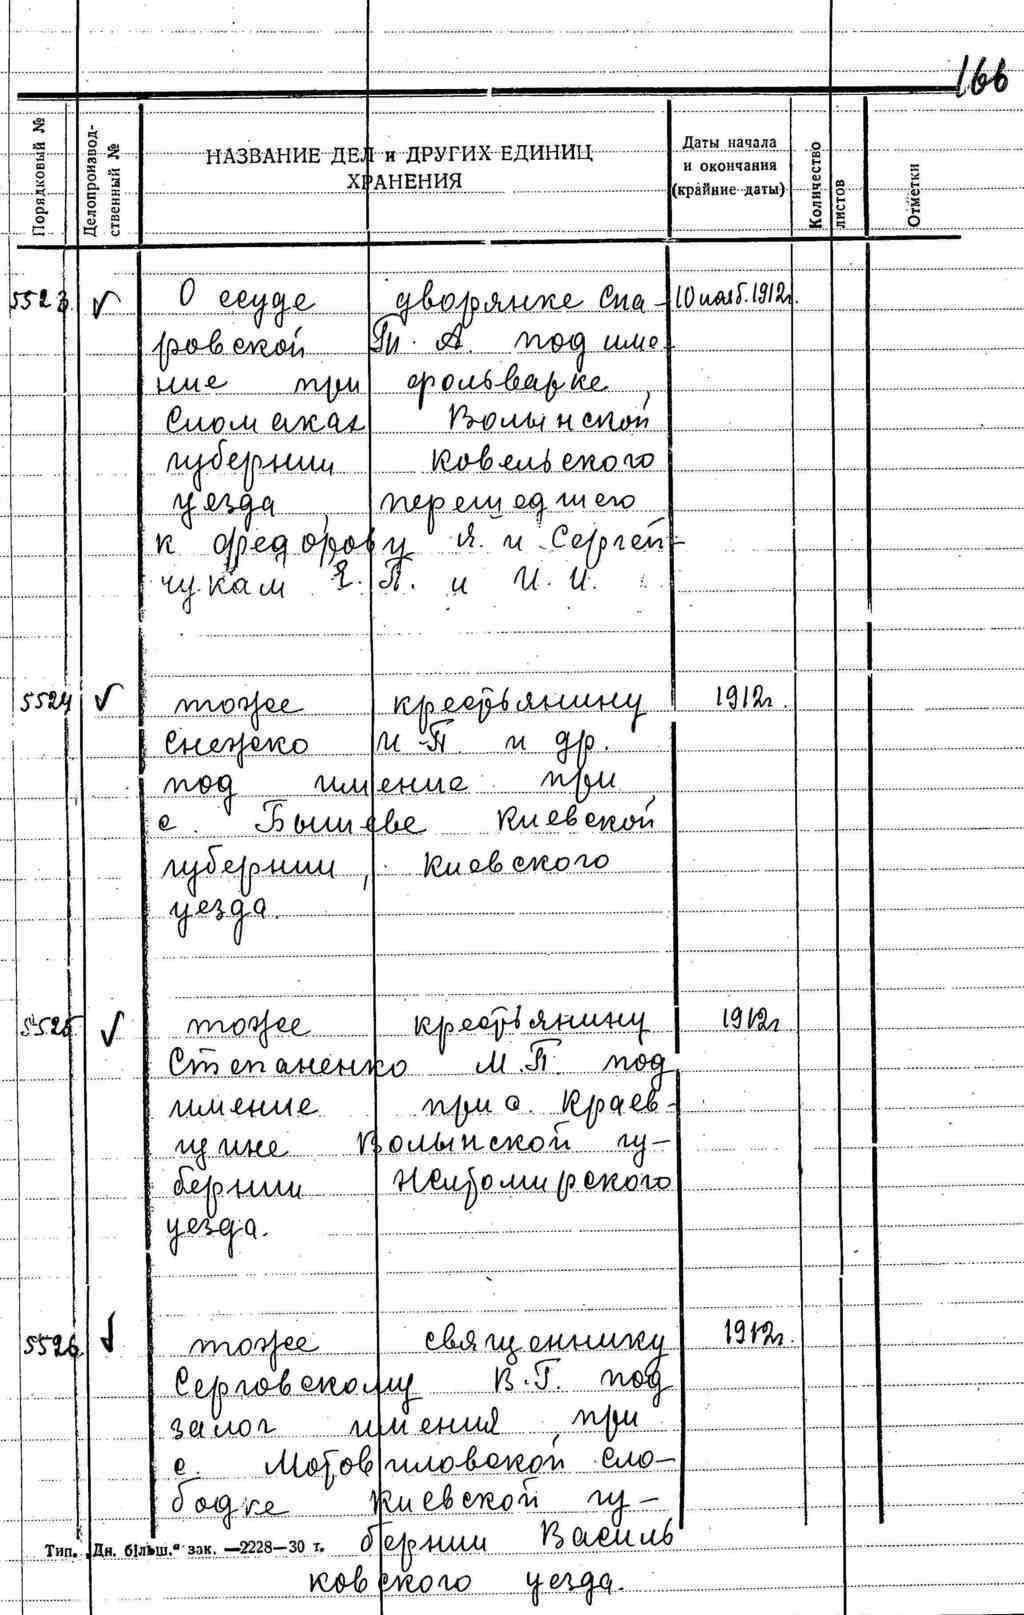 166
Порядковый №
Делопроизвод-
ственный №
НАЗВАНИЕ ДЕЛ и ДРУГИХ ЕДИНИЦ
ХРАНЕНИЯ
Даты начала
и окончания
(крайние даты)
Количество
листов
Отметки
5523 ✓ О ссуде дворянке Спа- 10 нояб. 1912г.
ровской А. под име-
ние при фольварке
Волынской
губернии Ковельского
уезда, перешедшего
к Федорову Я. и Сергей-
чукам Я. П. и И. И.
5524 ✓ тоже крестьянину 1912г.
Снежко И. П. и др.
под имение при
с. Бышеве Киевской
губернии, Киевского
уезда.
5525 ✓ тоже крестьянину 1912г
Степаненко М. П. под
имение при с. Краев-
щине Волынской гу-
бернии Житомирского
уезда.
5526 ✓ тоже священнику 1912г.
Серговскому В. Г. под
залог имения при
с. Мотовиловской Сло-
бодке Киевской гу-
Тип. „Дн. більш.“ зак. —2228—30 т. бернии Василь
ковского уезда.